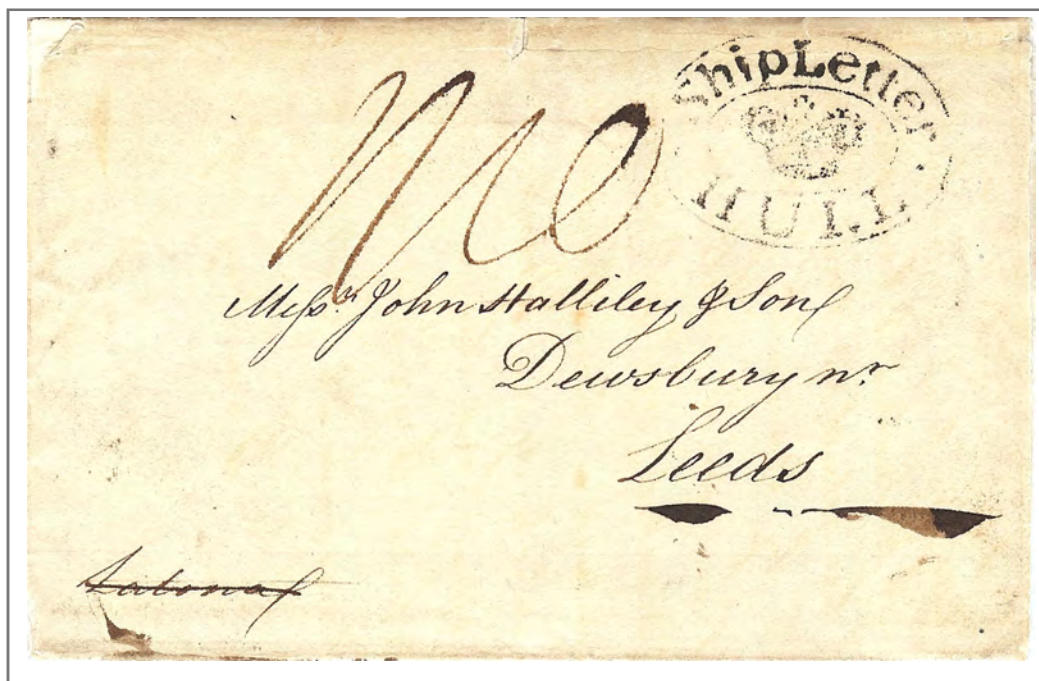 Ship Letter
HULL
Mess.rs John Halliley & Son
Dewsbury nr
Leeds